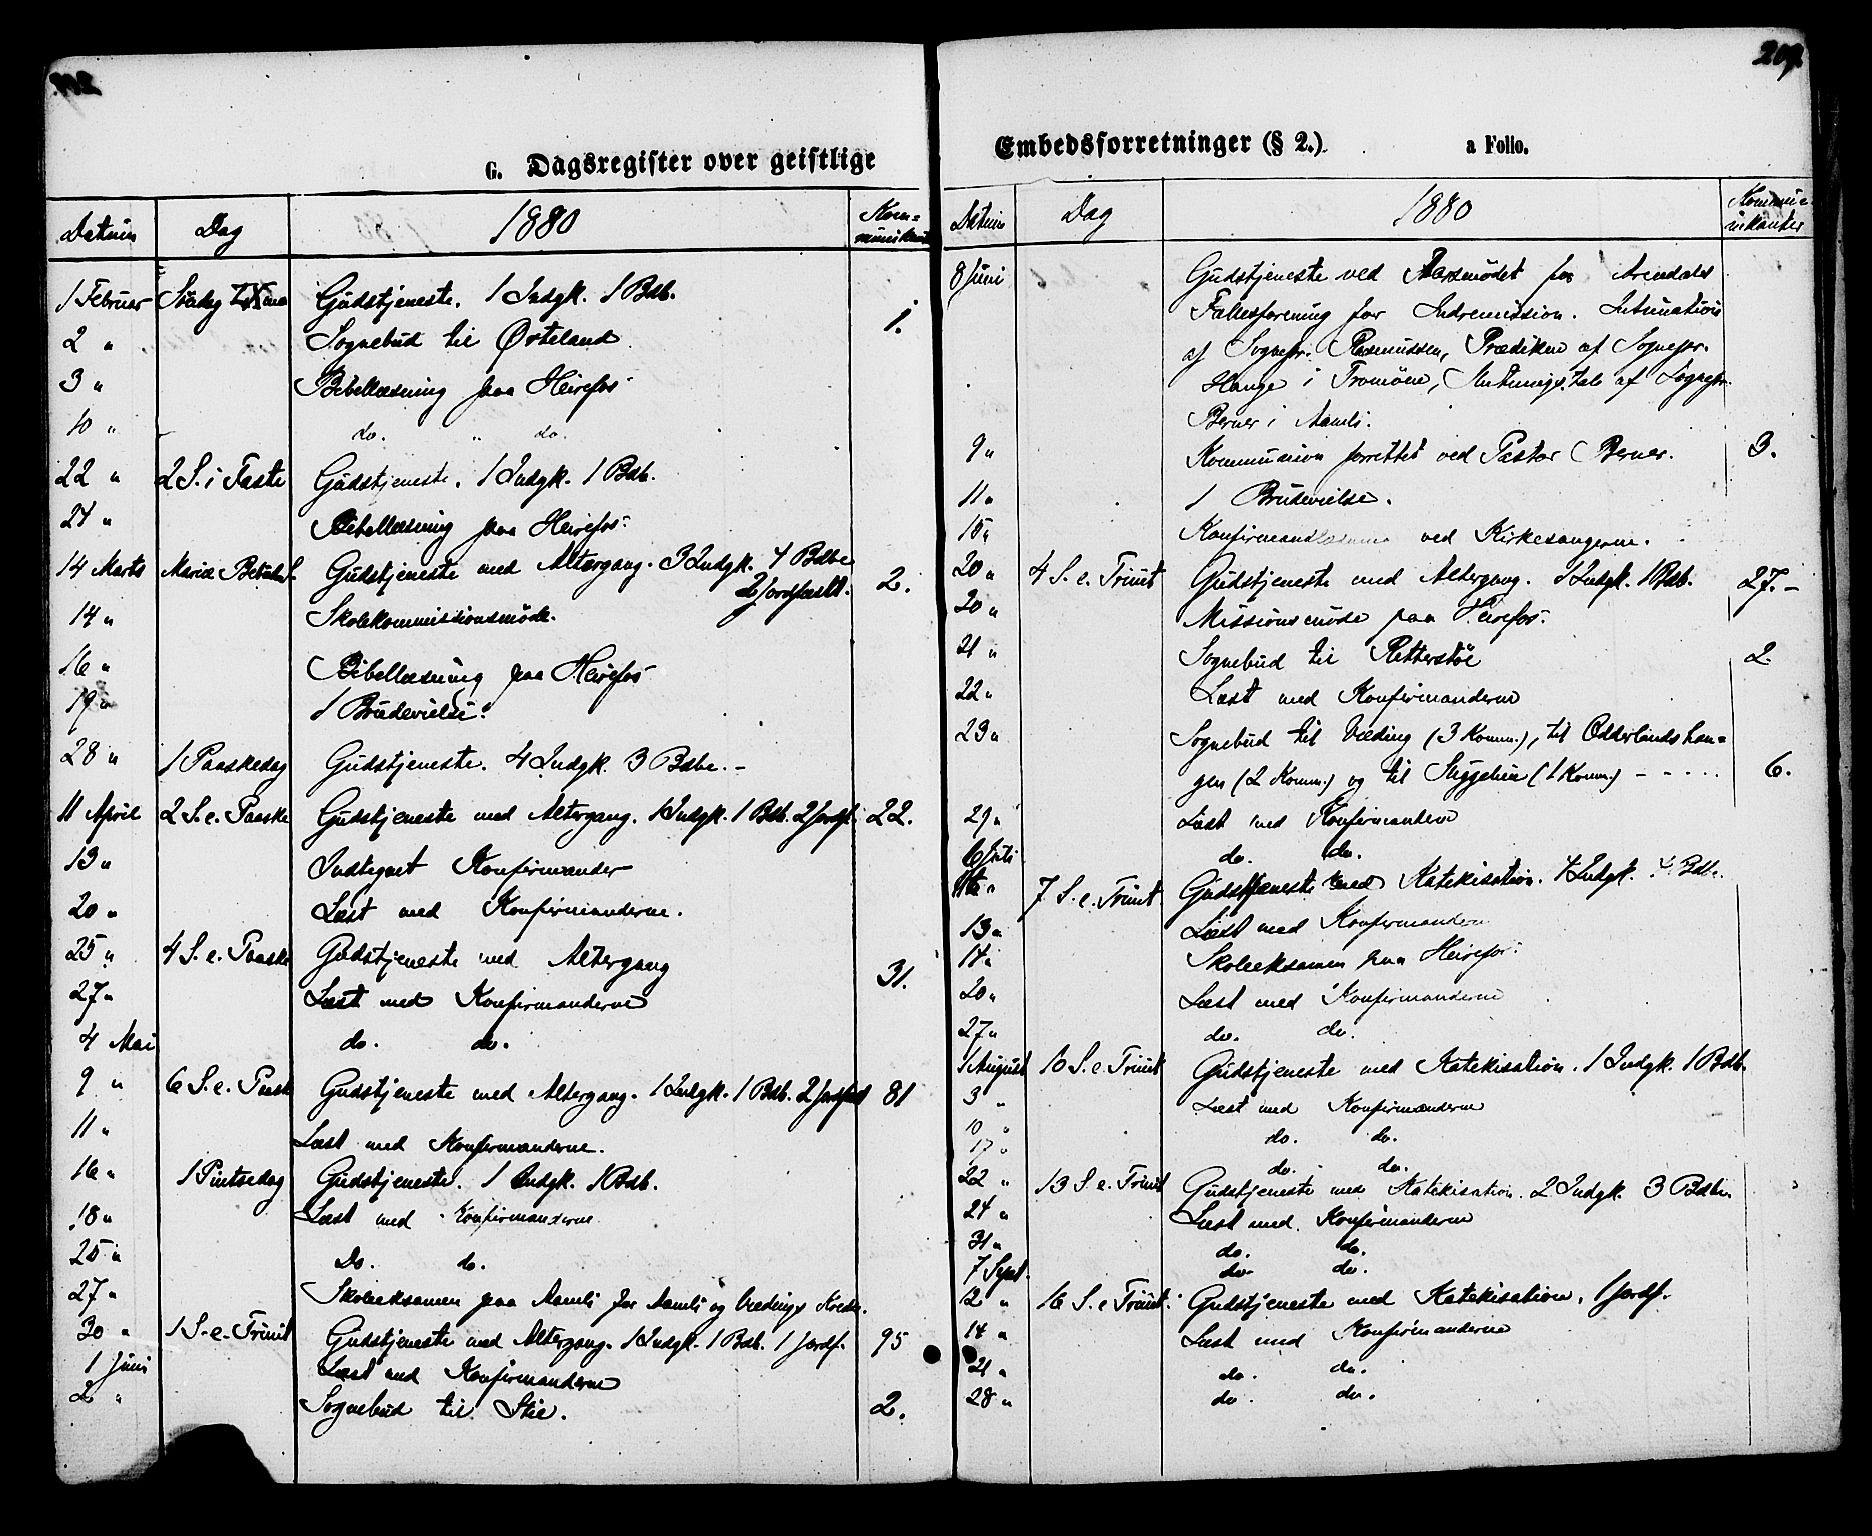 G. Dagsregister over geistlige
Datum Dag 1880 Kommunikanter
1 Februar Gudstjeneste. 1 Indgk. 1 Bdb.
2 " Sognebud til Østeland 1.
3 " Bibellæsning paa Heirefos
10 " do. " do.
22 " 2 S. i Faste Gudstjeneste. 1 Indgk. 1 Bdb.
24 " Bibellæsning paa Heirefos
14 Marts Mariæ Bebud. Gudstjeneste med Altergang. 3 Indgk. 4 Bdbe
2 Jordfæst. 2.
14 " Skolekommissionsmøde.
16 " Bibellæsning paa Heirefos
19 " 1 Brudevielse.
28 " 1 Paaskedag Gudstjeneste. 4 Indgk. 3 Bdbe. -
11 April 2 S. e. Paaske Gudstjeneste med Altergang. 1 Indgk. 1 Bdb. 2 Jordf. 22.
13 " Indtegnet Konfirmander
20 " Læst med Konfirmanderne.
25 " 4 S. e. Paaske Gudstjeneste med Altergang 31.
27 " Læst med Konfirmanderne
4 Mai do. do.
9 " 6 S. e. Pask Gudstjeneste med Altergang. 1 Indgk. 1 Bdb. 2 Jordfæst 81
11 " Læst med Konfirmanderne.
16 " 1 Pintsedag Gudstjeneste. 1 Indgk. 1 Bdb.
18 " Læst med Konfirmanderne
25 " Do. do.
27 " Skoleeksamen paa Aamli for Aamli og Vædings Kreds.
30 " 1 S. e. Trinit Gudstjeneste med Altergang. 1 Indgk. 1 Bdb. 1 Jordf. 95
1 Juni Læst med Konfirmanderne
2 " Sognebud til Stie. 2.
209.
Embedsforretninger (§ 2.). a Folio.
Datum Dag 1880 Kommunikanter
8 Juni Gudstjeneste ved Aarsmødet for Arendals
Fællesforening for Indremission. Intimation
af Sognepr. Rasmussen, Prædiken af Sognepr.
Hauge i Tromøen, Slutningstale af Sognepr.
Berner i Aamli.
9 " Kommunion forrettet ved Pastor Berner. 3.
11 " 1 Brudevielse.
15 " Konfirmandlæsning ved Kirkesangerne.
20 " 4 S. e. Trinit Gudstjeneste med Altergang. 1 Indgk. 1 Bdb. 27. -
20 " Missionsmøde paa Heirefos.
21 " Sognebud til Retterstøl 2.
22 " Læst med Konfirmanderne
23 " Sognebud til Væding (3 Komm.), til Odderlandshau=
gen (2 Komm.) og til (1 Komm.) - - - - - 6.
29 " Læst med Konfirmanderne
6 Juli do. do.
7 S. e. Trinit. Gudstjeneste med Katekisation. 4 Indgk. 4 Bdb.
13 " Læst med Konfirmandern
14 " Skoleeksamen paa Heirefos.
20 " Læst med Konfirmanderne
27 " do. do.
1 August 10 S. e. Trinit Gudstjeneste med Katekisation. 1 Indgk. 1 Bdb.
3 " Læst med Konfirmanderne
10 " do. do.
17 " do. do.
22 " 13 S. e. Trinit Gudstjeneste med Katekisation. 2 Indgk. 3 Bdbe.
24 " Læst med Konfirmanderne
31 " do. do.
7 Sept. do. do.
12 " 16 S. e Trinit. Gudstjeneste med Katekisation. 1 Jordf.
14 " Læst med Konfirmanderne
21 " do. do.
28 " do. do.